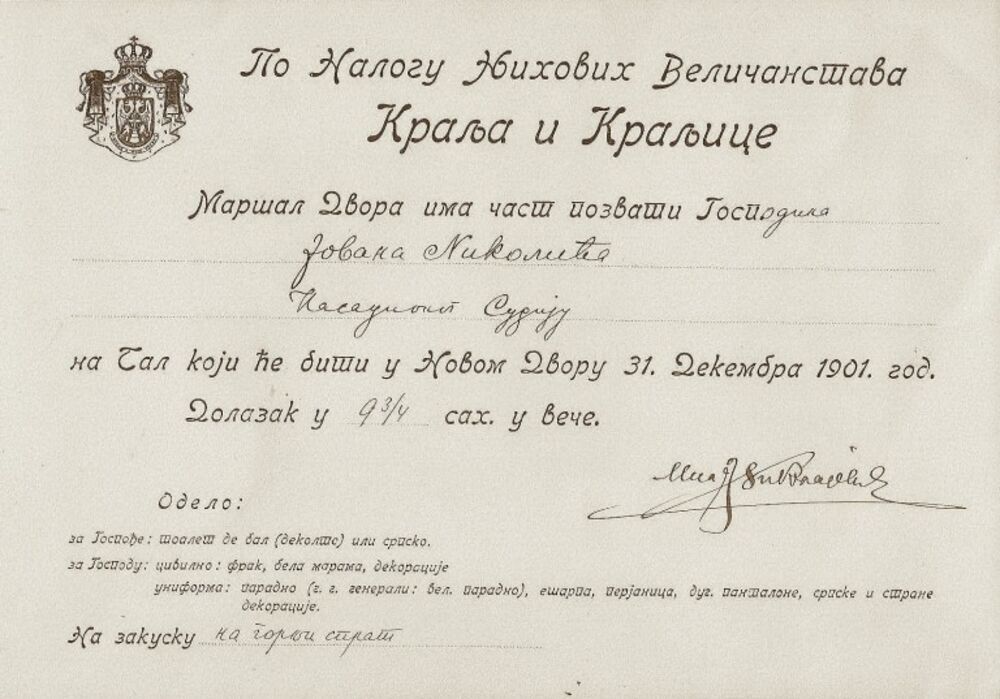 По Налогу Њихових Величанстава
Краља и Краљице
Маршал Двора има част позвати Господина
Јована Николића
Касационог Судију
на Бал који ће бити у Новом Двору 31. Декембра 1901. год.
Долазак у 9 3/4 сах. у вече.
Одело:
за Госпође: тоалет де бал (деколте) или српско.
за Господу: цивилно: фрак, бела марама, декорације
униформа: парадно (г. г. генерали: вел. парадно), ешарпа, перјаница, дуг. панталоне, српске и стране
декорације.
На закуску на горњи спрат